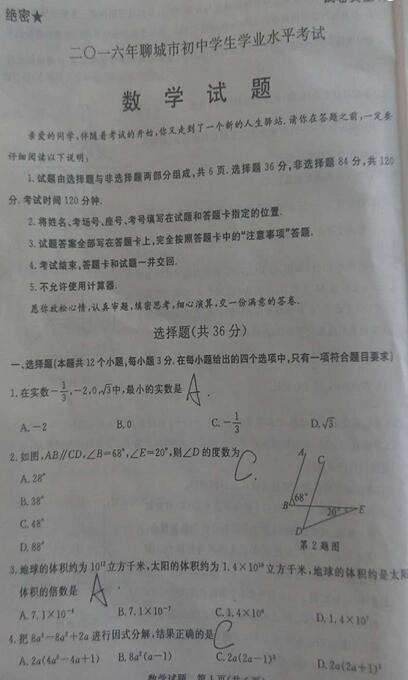 绝密★
二〇一六年聊城市初中学生学业水平考试
数 学 试 题
亲爱的同学,伴随着考试的开始,你又走到了一个新的人生驿站.请你在答题之前,一定要
仔细阅读以下说明:
1.试题由选择题与非选择题两部分组成,共6页.选择题36分,非选择题84分,共120
分.考试时间120分钟.
2.将姓名、考场号、座号、考号填写在试题和答题卡指定的位置.
3.试题答案全部写在答题卡上,完全按照答题卡中的“注意事项”答题.
4.考试结束,答题卡和试题一并交回.
5.不允许使用计算器.
愿你放松心情,认真审题,缜密思考,细心演算,交一份满意的答卷.
选择题(共36分)
一、选择题(本题共12个小题,每小题3分.在每小题给出的四个选项中,只有一项符合题目要求)
1.在实数-1/3,-2,0,√3中,最小的实数是 A.
A.-2 B.0 C.-1/3 D.√3
2.如图,AB∥CD,∠B=68°,∠E=20°,则∠D的度数为 C.
A.28°
B.38°
C.48°
D.88°
A C
B 68° 20° E
D
第2题图
3.地球的体积约为10¹²立方千米,太阳的体积约为1.4×10¹⁸立方千米,地球的体积约是太阳
体积的倍数是 A.
A.7.1×10⁻⁶ B.7.1×10⁻⁷ C.1.4×10⁶ D.1.4×10⁷
4.把8a³-8a²+2a进行因式分解,结果正确的是 C
A.2a(4a²-4a+1) B.8a²(a-1) C.2a(2a-1)² D.2a(2a+1)²
数学试题 第1页(共6页)